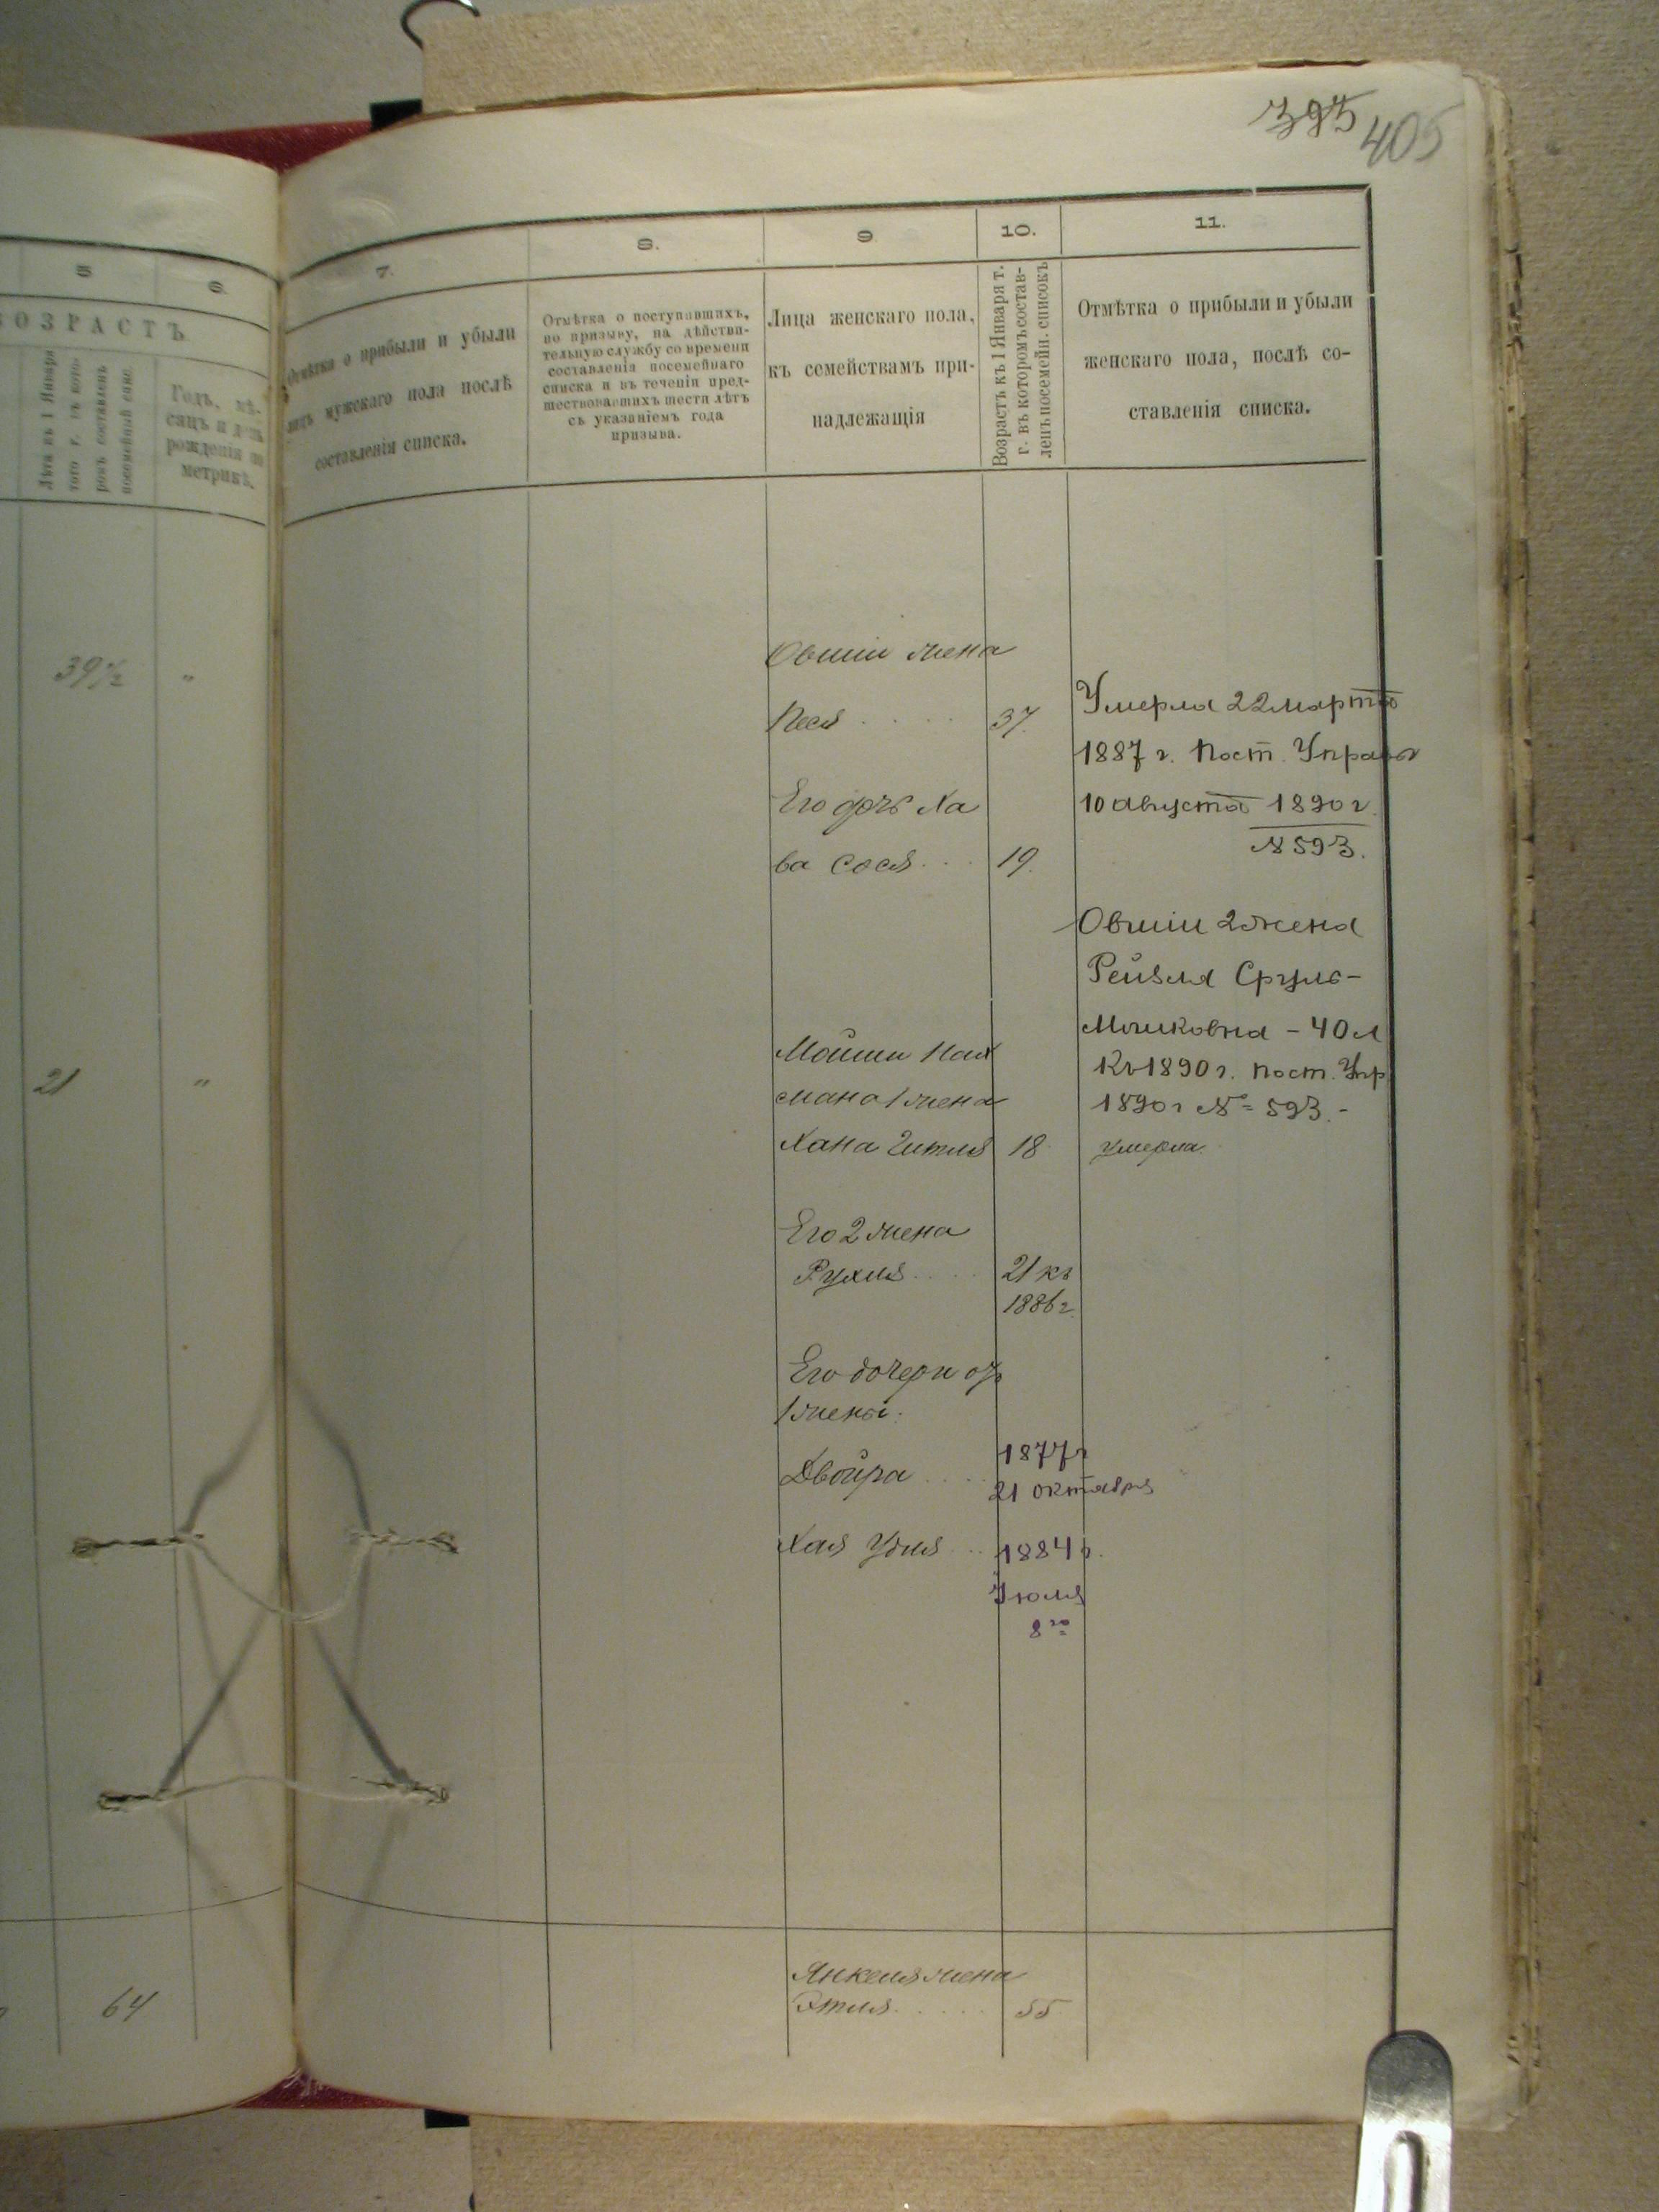 395
405
5
6
7.
8.
9
10.
11.
ВОЗРАСТЪ
Лѣта къ 1 Января
того г. въ кото-
ромъ составленъ
посемейный спис.
Годъ, мѣ-
сяцъ и день
рожденія по
метрикѣ.
Отмѣтка о прибыли и убыли
лицъ мужскаго пола послѣ
составленія списка.
Отмѣтка о поступившихъ,
по призыву, на дѣйстви-
тельную службу со времени
составленія посемейнаго
списка и въ теченіи пред-
шествовавшихъ шести лѣтъ
съ указаніемъ года
призыва.
Лица женскаго пола,
къ семействамъ при-
надлежащія
Возрастъ къ 1 Января т.
г. въ которомъ состав-
ленъ посемейн. списокъ
Отмѣтка о прибыли и убыли
женскаго пола, послѣ со-
ставленія списка.
39½ "
Овшіи жена
Песя . . . . 37.
Его дочь Ха
ва Сося . . . 19.
Умерла 22 марта
1887 г. Пост. Управы
10 августа 1890 г.
№ 593.
Овшіи 2 жена
Рейзля Сруль-
Мошковна - 40 л
къ 1890 г. пост. Упр
1890 г № 593. -
21 "
Мойши Нах
мана 1 жена
Хана Гитля 18 умерла.
Его 2 жена
Рухля . . . . 21 къ
1886 г.
Его дочери отъ
1 жены:
Двойра . . . 1877 г
21 октября
Хая Удля . . . 1884 г.
Іюля
8го
64
Янкеля жена
Этля . . . . . 55